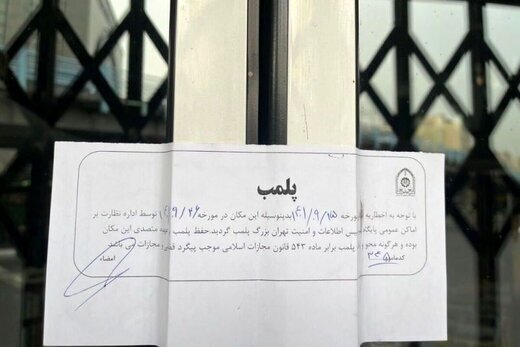 پلمب
با توجه به اخطاریه مورخه ۴۱/۹/۲۵ بدینوسیله این مکان در مورخه ۹/۲۶ توسط اداره نظارت بر
اماکن عمومی پایگاه پلیس اطلاعات و امنیت تهران بزرگ پلمب گردید. حفظ پلمب متصدی این مکان
بوده و هرگونه محو پلمب برابر ماده ۵۴۳ قانون مجازات اسلامی موجب پیگرد مجازات می باشد.
کدمامور ۳۴۵ امضاء